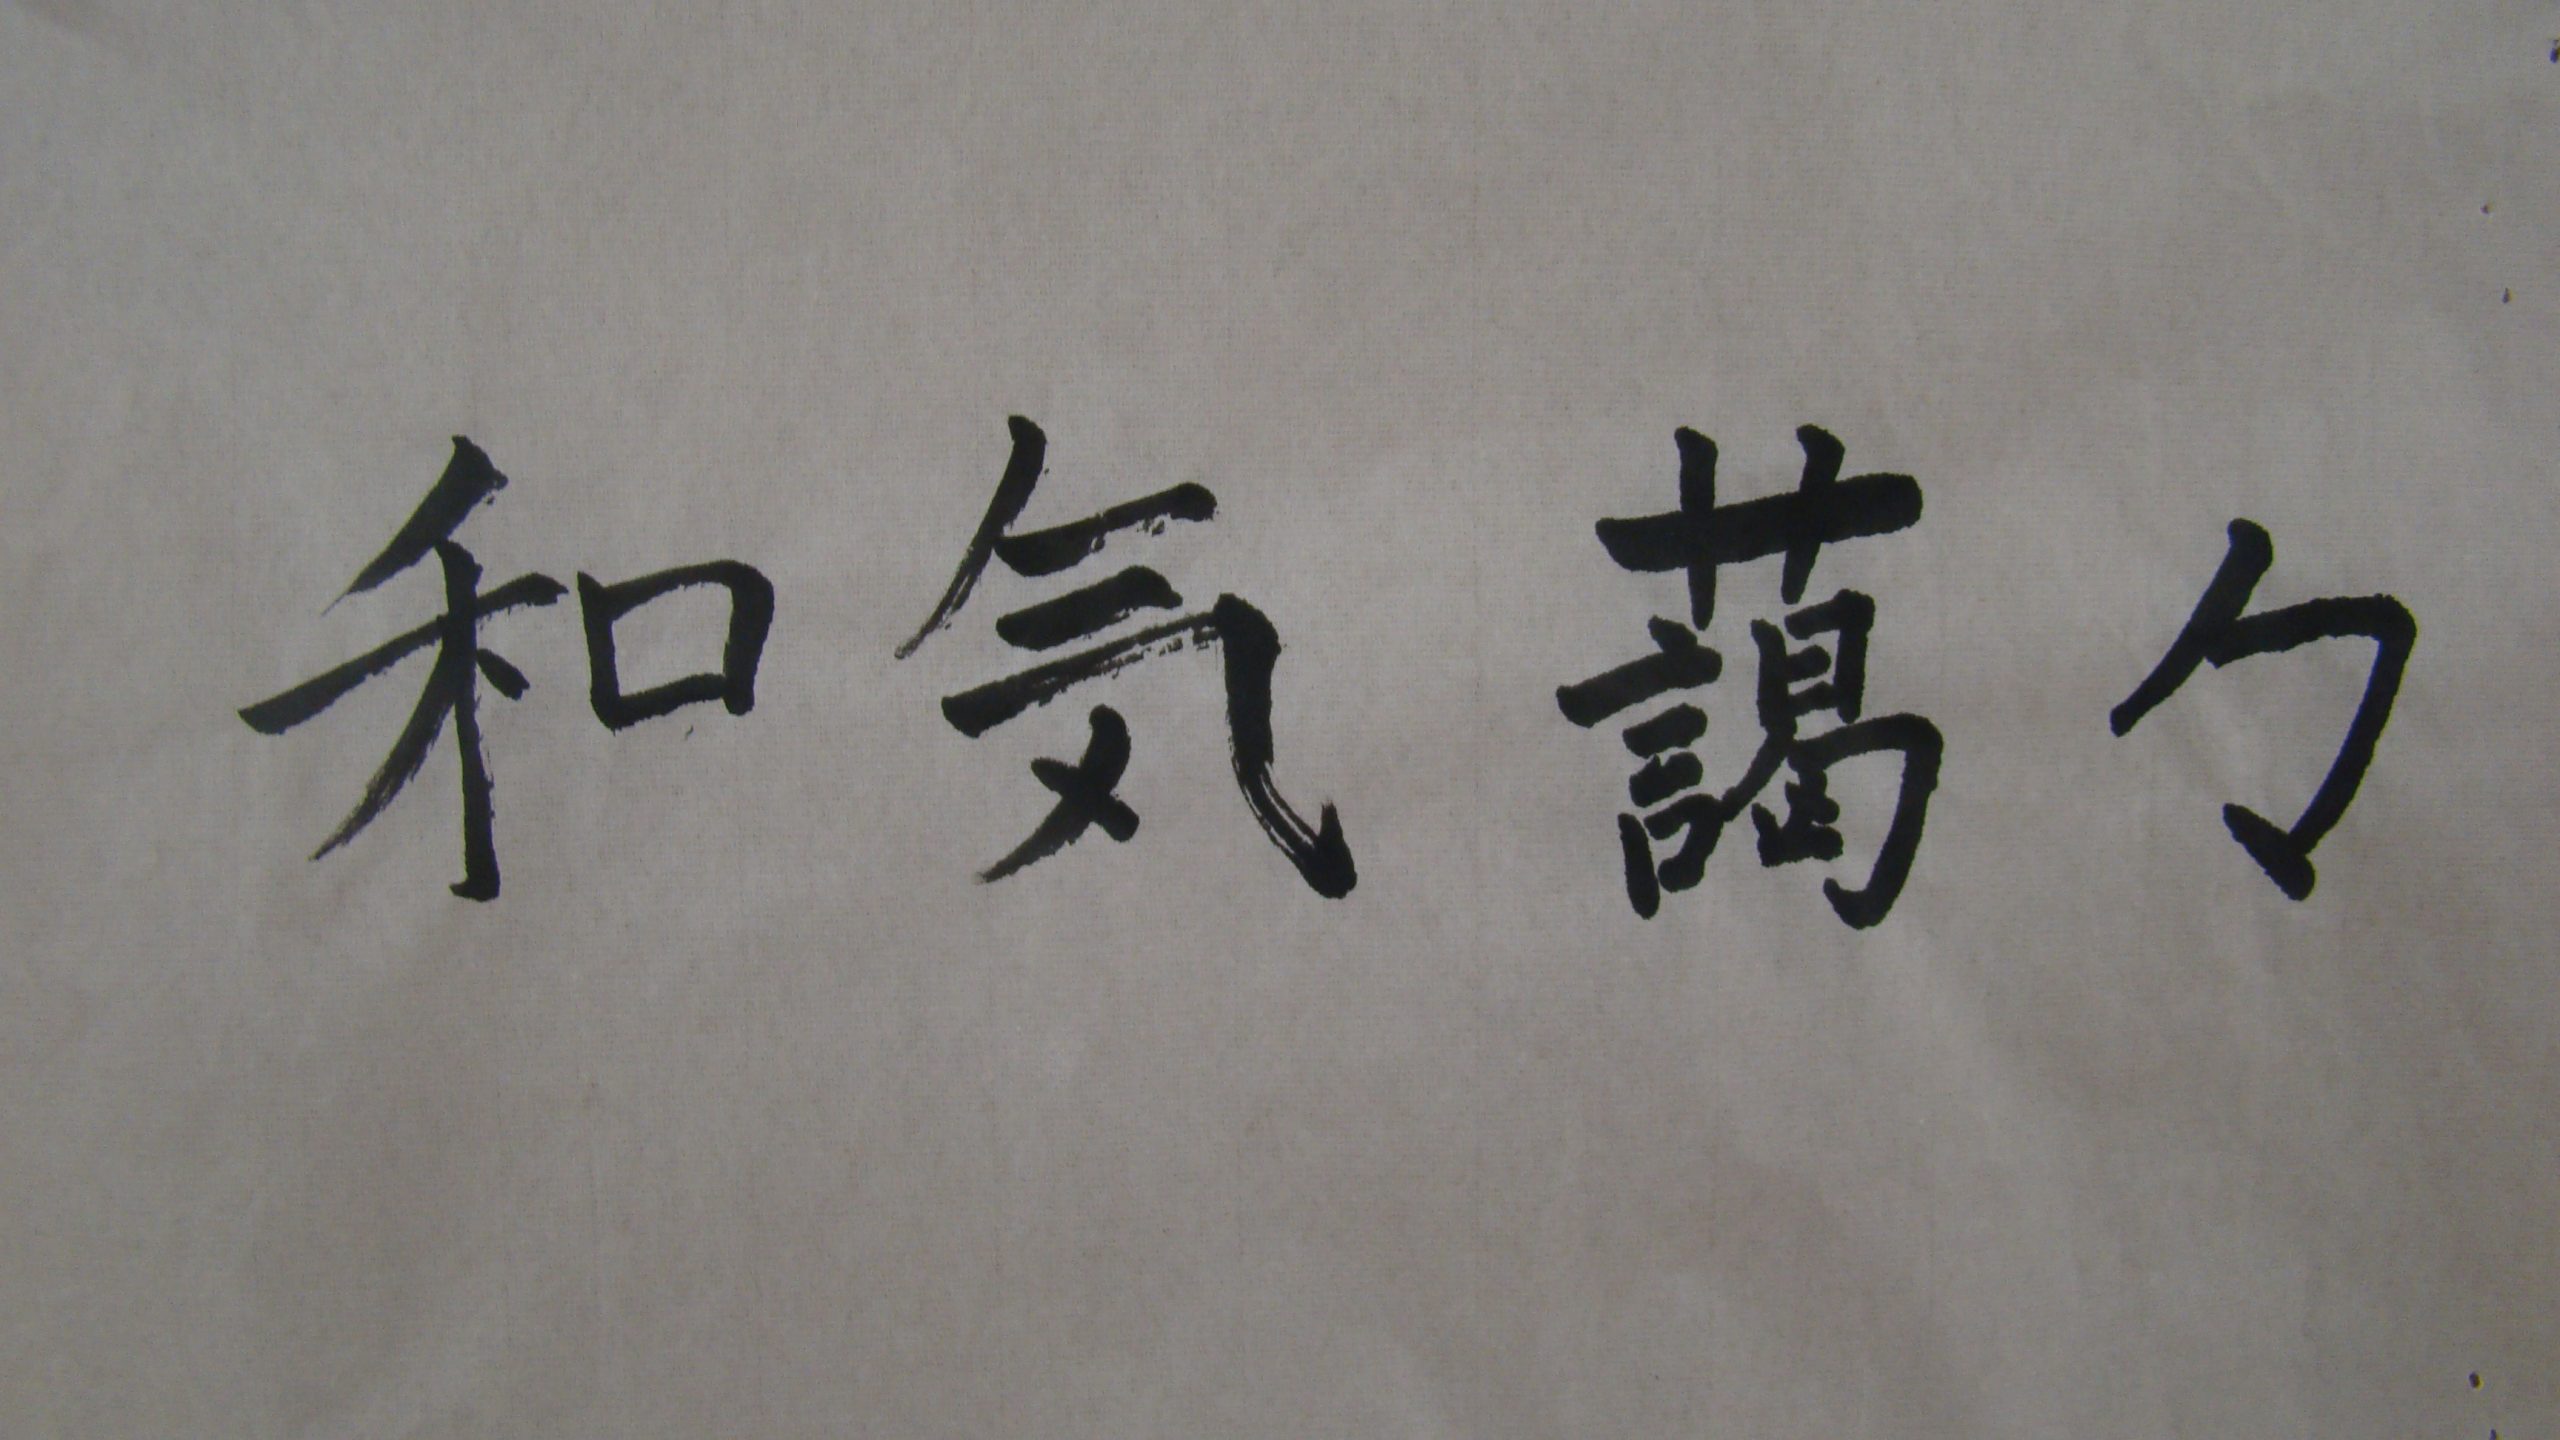 和気藹々